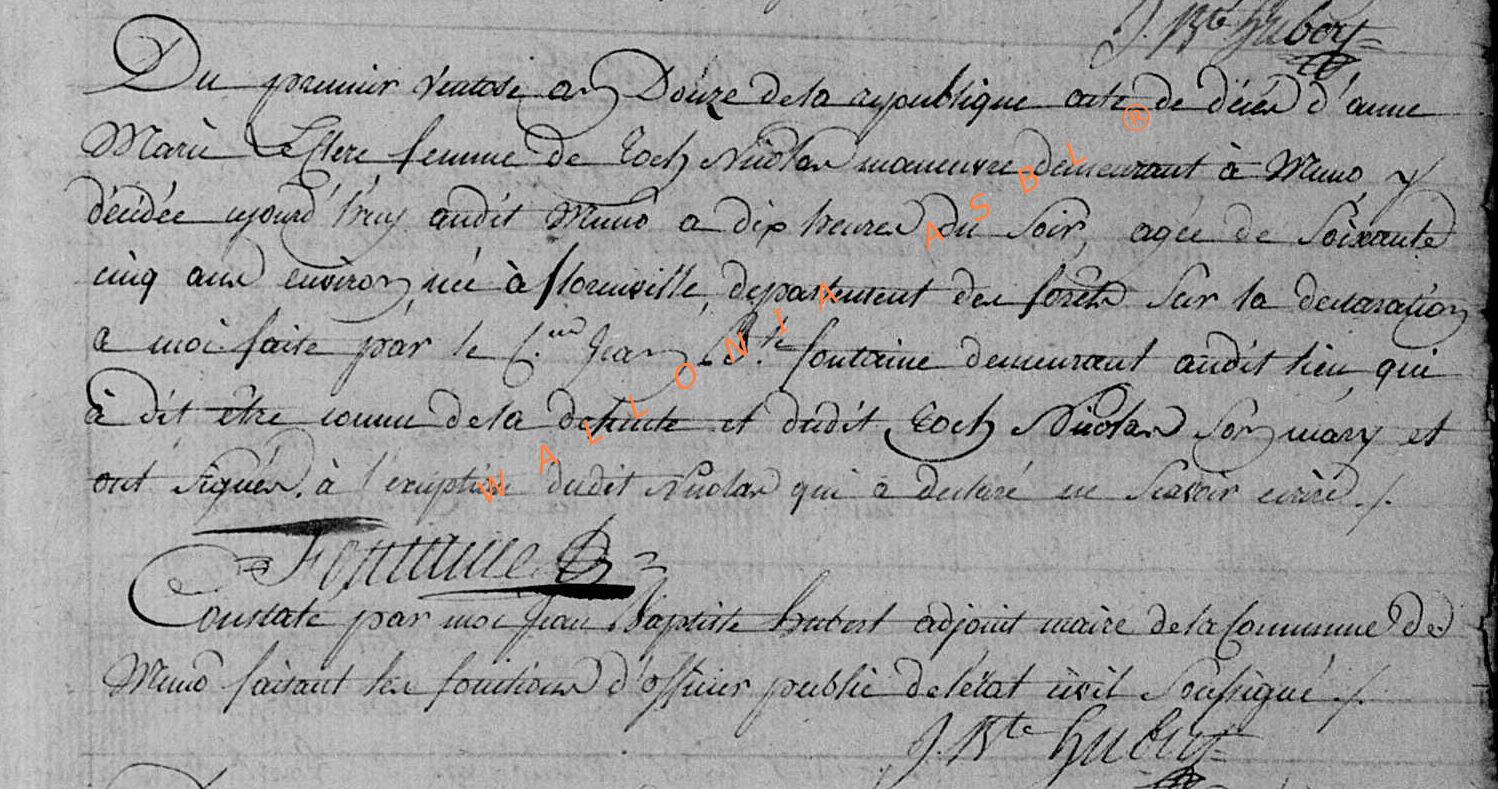 J. Bte Hubert
Du premier ventose an Douze de la republique acte de décès d'anne
Marie femme de Roch Nicolas maneuvre demeurant à Muno y
décédée ajourd'huy audit Muno a dix heures du soir, agée de soixante
cinq ans environ, née à florenville, departement des forêts sur la declaration
a moi faite par le C.en Jean B.te fontaine demeurant audit lieu, qui
à dit être connu de la defunte et dudit Roch Nicolas son mary et
ont signés, à l'exception dudit Nicolas qui a declaré ne scavoir ecrire ./.
Fontaine
Constate par moi Jean Baptiste hubert adjoint maire de la Commune de
Muno faisant les fonctions d'officier public de l'état civil soussigné ./.
J. Bte Hubert
WALLONIA ASBL ®